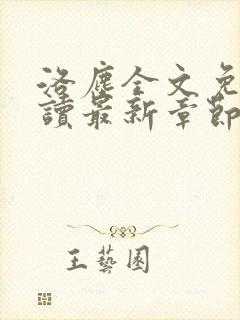 洛塵全文免
讀最新章節
王藝園